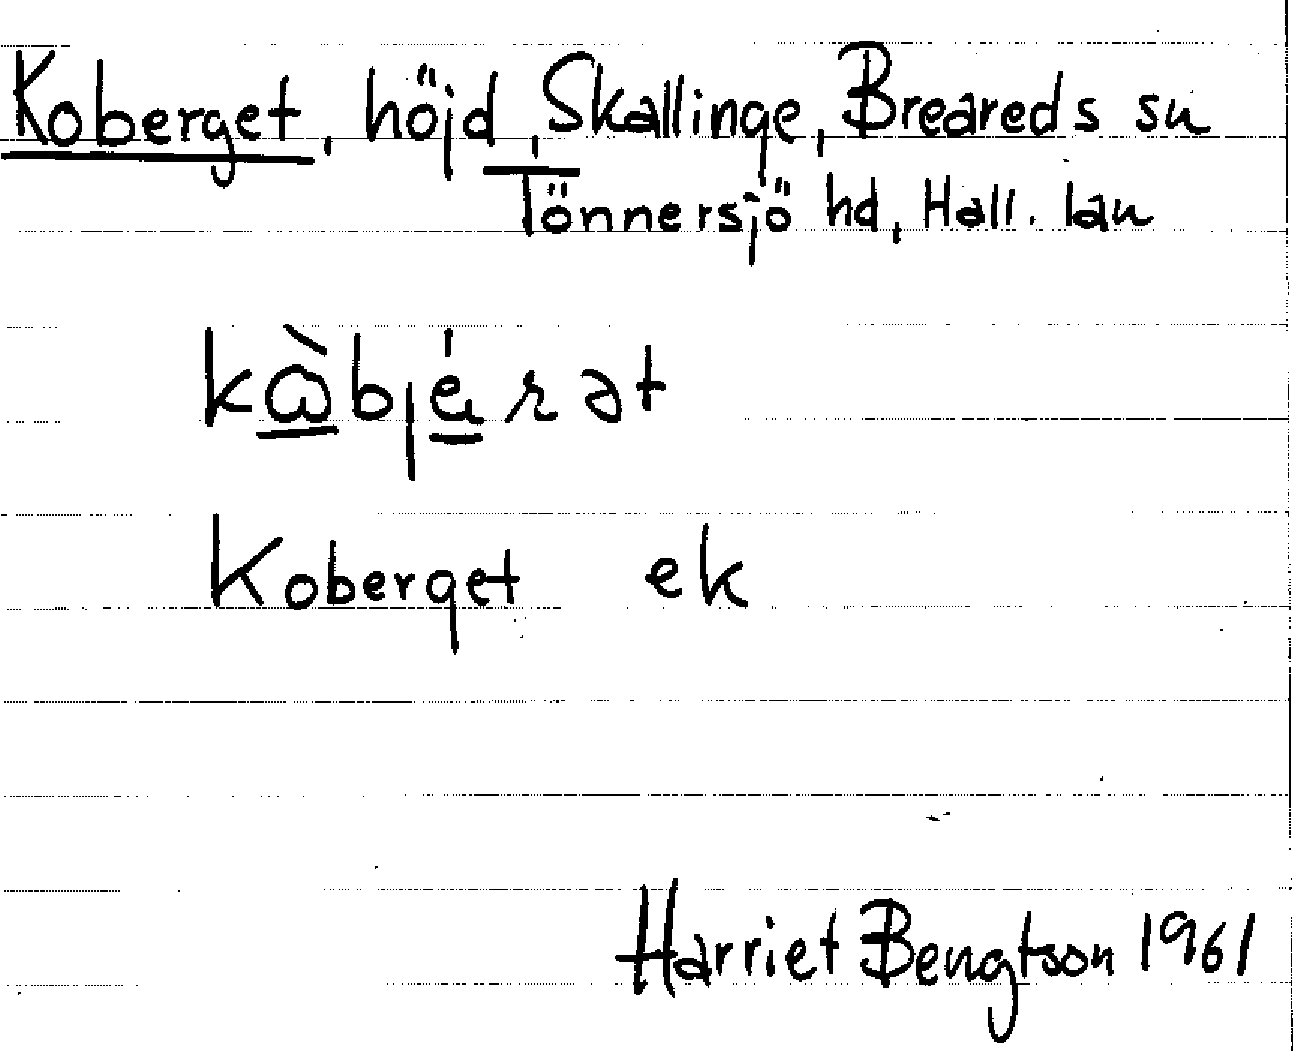 Koberget, höjd, Skallinge, Breareds sn
Tönnersjö hd, Hall. län
Koberget ek
Harriet Bengtson 1961